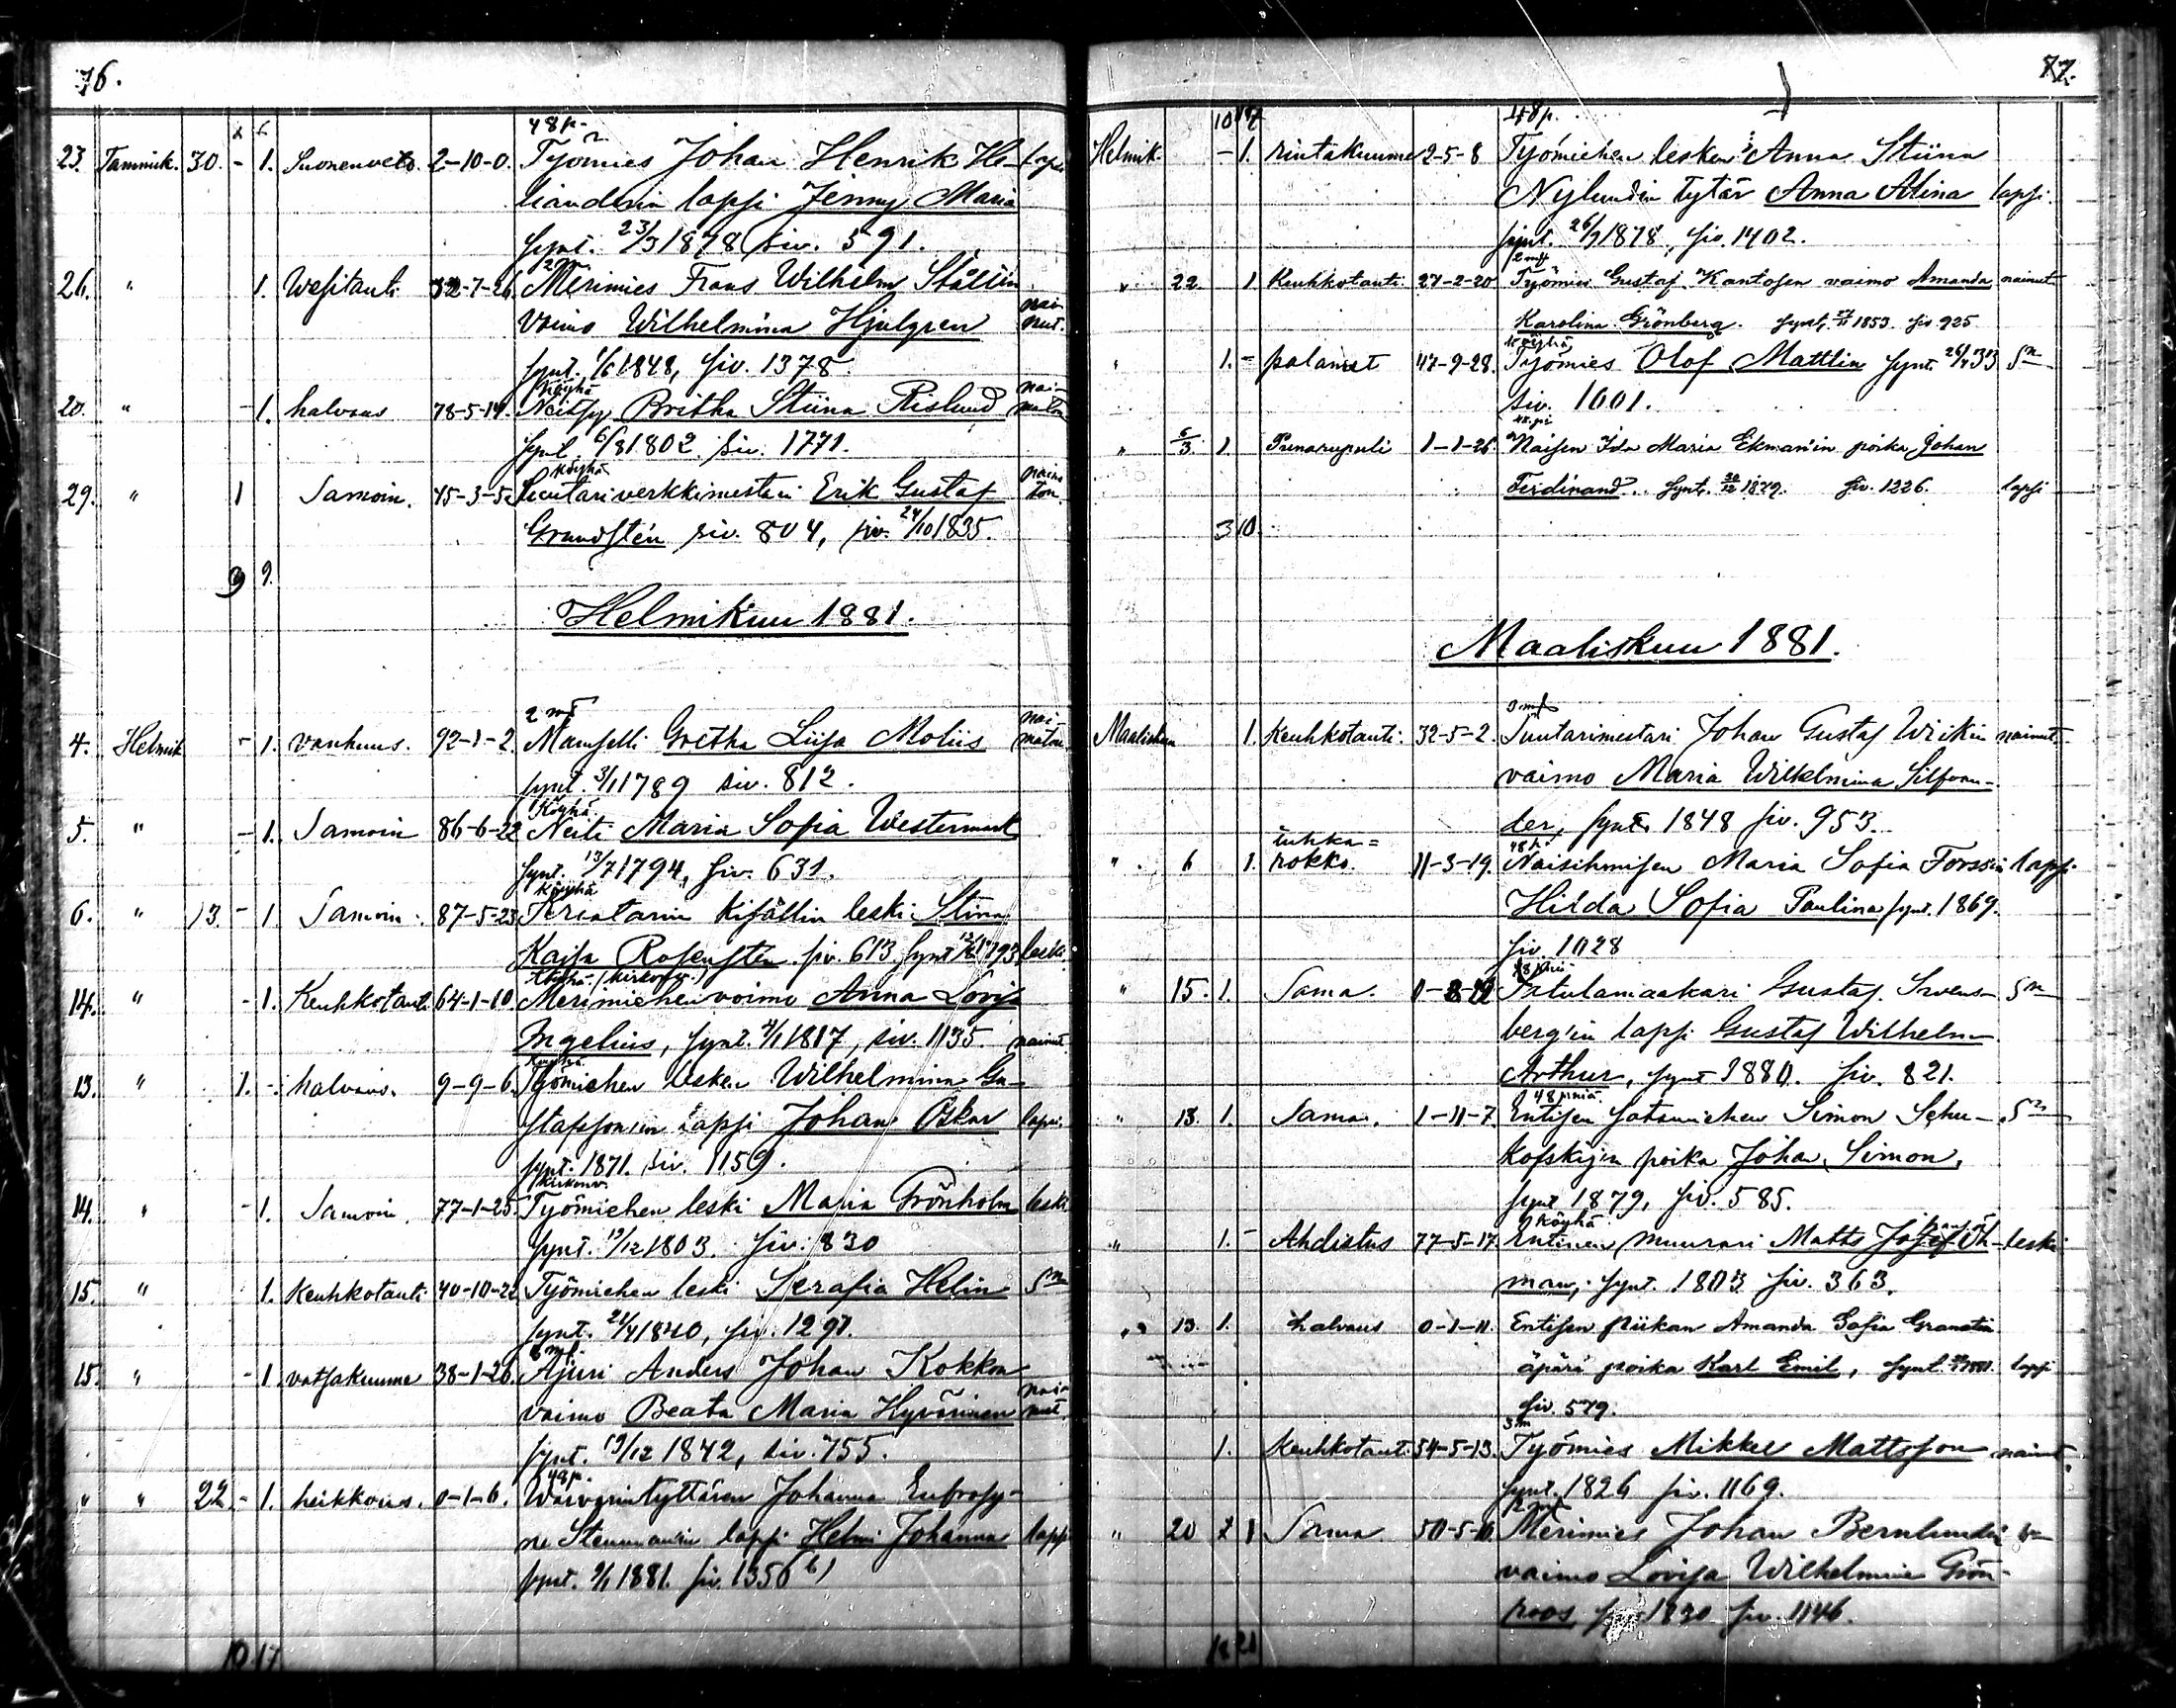 76.
48 p.
23. Tammik. 30. - 1. Suonenveto. 2-10-0. Työmies Johan Henrik He- lapsi
lianderin lapsi Jenny Maria
synt. 23/3 1878 siv. 591.
26. " 1. Wesitauti 32-7-26. Merimies Frans Wilhelm Ställin
vaimo Wilhelmina Hjulgren nai-
nut.
synt. 1/6 1848, siv. 1378.
Köyhä
20. " - 1. halvaus 78-5-14. Neitsy Britha Stiina Rislund nai-
maton
synt. 6/8 1802 siv. 1771.
Köyhä
29. " 1 Samoin. 45-3-5. Erik Gustaf
Grundstén siv. 804, siv. 24/10 1835.
9 9.
Helmikuu 1881.
4. Helmik. - 1. vanhuus. 92-1-2. Mamselli Gretha Liisa Moliis nai-
maton
synt. 3/1 1789 siv. 812.
Köyhä
5. " - 1. Samoin 86-6-22 Neiti Maria Sofia Westermark
synt. 13/7 1794, siv. 631.
Köyhä
6. " 13. - 1. Samoin. 87-5-23 leski Stina
Kajsa Rosenstén siv. 613 synt 1793 leski
Köyhä
14. " - 1. Keuhkotauti 64-1-10. Merimiehen vaimo Anna Lovisa
Ingelius, synt. 4/1 1817, siv. 1135. nainut.
Köyhä
13. " 1. - halvaus. 9-9-6. Työmiehen lesken Wilhelmina Gu-
stafssonin lapsi Johan Oskar lapsi.
synt. 1871. siv. 1159.
14. " - 1. Samoin. 77-1-25. Työmiehen leski Maria Grönholm leski
synt. 19/12 1803. siv. 830
15. " 1. Keuhkotauti 40-10-22 Työmiehen leski Serafia Helin Sn
synt. 1840, siv. 1297.
15. " - 1. vatsakuume 38-1-26. Ajuri Anders Johan Kokkon
vaimo Beata Maria Hyvärinen nai-
nut.
synt. 19/12 1842, siv. 755.
48 p.
" " 22 - 1. heikkous. 0-1-6. Johanna Eufrosy-
ne Stenmanin lapsi Helmi Johanna lapsi
synt. 9/1 1881. siv. 1356
10 17
77.
10 17
48 p.
Helmik. - 1. rintakuume 2-5-8 Työmiehen lesken Anna Stiina
Nylundin tytär Anna Alina lapsi.
synt. 26/9 1878, siv. 1402.
" 22 1 Keuhkotauti 27-2-20 Työmies Gustaf Kantosen vaimo Amanda nainut
Karolina Grönberg. synt. 1853. siv. 925
Köyhä
" 1. - palanut 47-9-28. Työmies Olof Mattlin synt. 26/4 33 Sn
siv. 1001.
" 6/3. 1. Punarupuli 1-1-26 Naisen Ida Maria Ekman'in poika Johan
Ferdinand. synt. 1879. siv. 1226. lapsi
3 10.
Maaliskuu 1881.
Maaliskuu 1. Keuhkotauti. 32-5-2. Suutarimestari Johan Gustaf Wiikin nainut
vaimo Maria Wilhelmina Silfvan-
der, synt. 1848 siv. 953.
" 6 1. tuhka=
rokko. 11-3-19. Naisihmisen Maria Sofia Forssin lapsi
Hilda Sofia Paulina synt. 1869.
siv. 1028
" 15. 1. Sama. Satulamaakari Gustaf Svens- Sn
berg'in lapsi Gustaf Wilhelm
Arthur, synt 1880. siv. 821.
48 penniä
" 13. 1. Sama. 1-11-7. Entisen sotamiehen Simon Sehu- Sn
kofskijin poika Johan Simon,
synt 1879, siv. 585.
Köyhä
" 1. - Ahdistus 77-5-17 Entinen muurari Matts Josef Öh- leski
man, synt. 1803 siv. 363.
" 13. 1. halvaus 0-1-11. Entisen piikan Amanda Sofia Granatin
äpärä poika Karl Emil, synt. 1881. lapsi
siv. 579.
1. Keuhkotauti 54-5-13. Työmies Mikkel Mattsson nainut.
synt. 1826 siv. 1169.
" 20 1 Sama 50-5-10. Merimies Johan Bernlundin Sn
vaimo Lovisa Wilhelmina Grön-
roos 1830 siv. 1146.